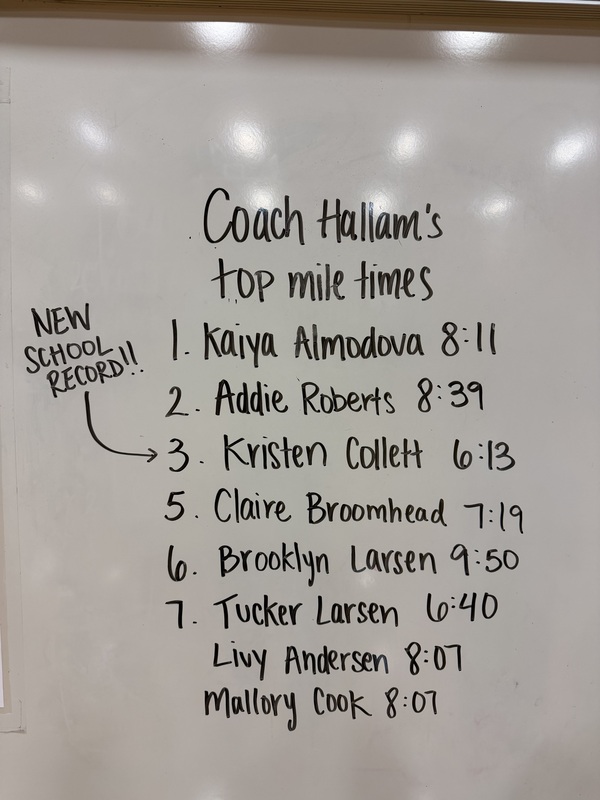 Coach Hallam's
top mile times
NEW
SCHOOL
RECORD!!
1. Kaiya Almodova 8:11
2. Addie Roberts 8:39
3. Kristen Collett 6:13
5. Claire Broomhead 7:19
6. Brooklyn Larsen 9:50
7. Tucker Larsen 6:40
Livy Andersen 8:07
Mallory Cook 8:07